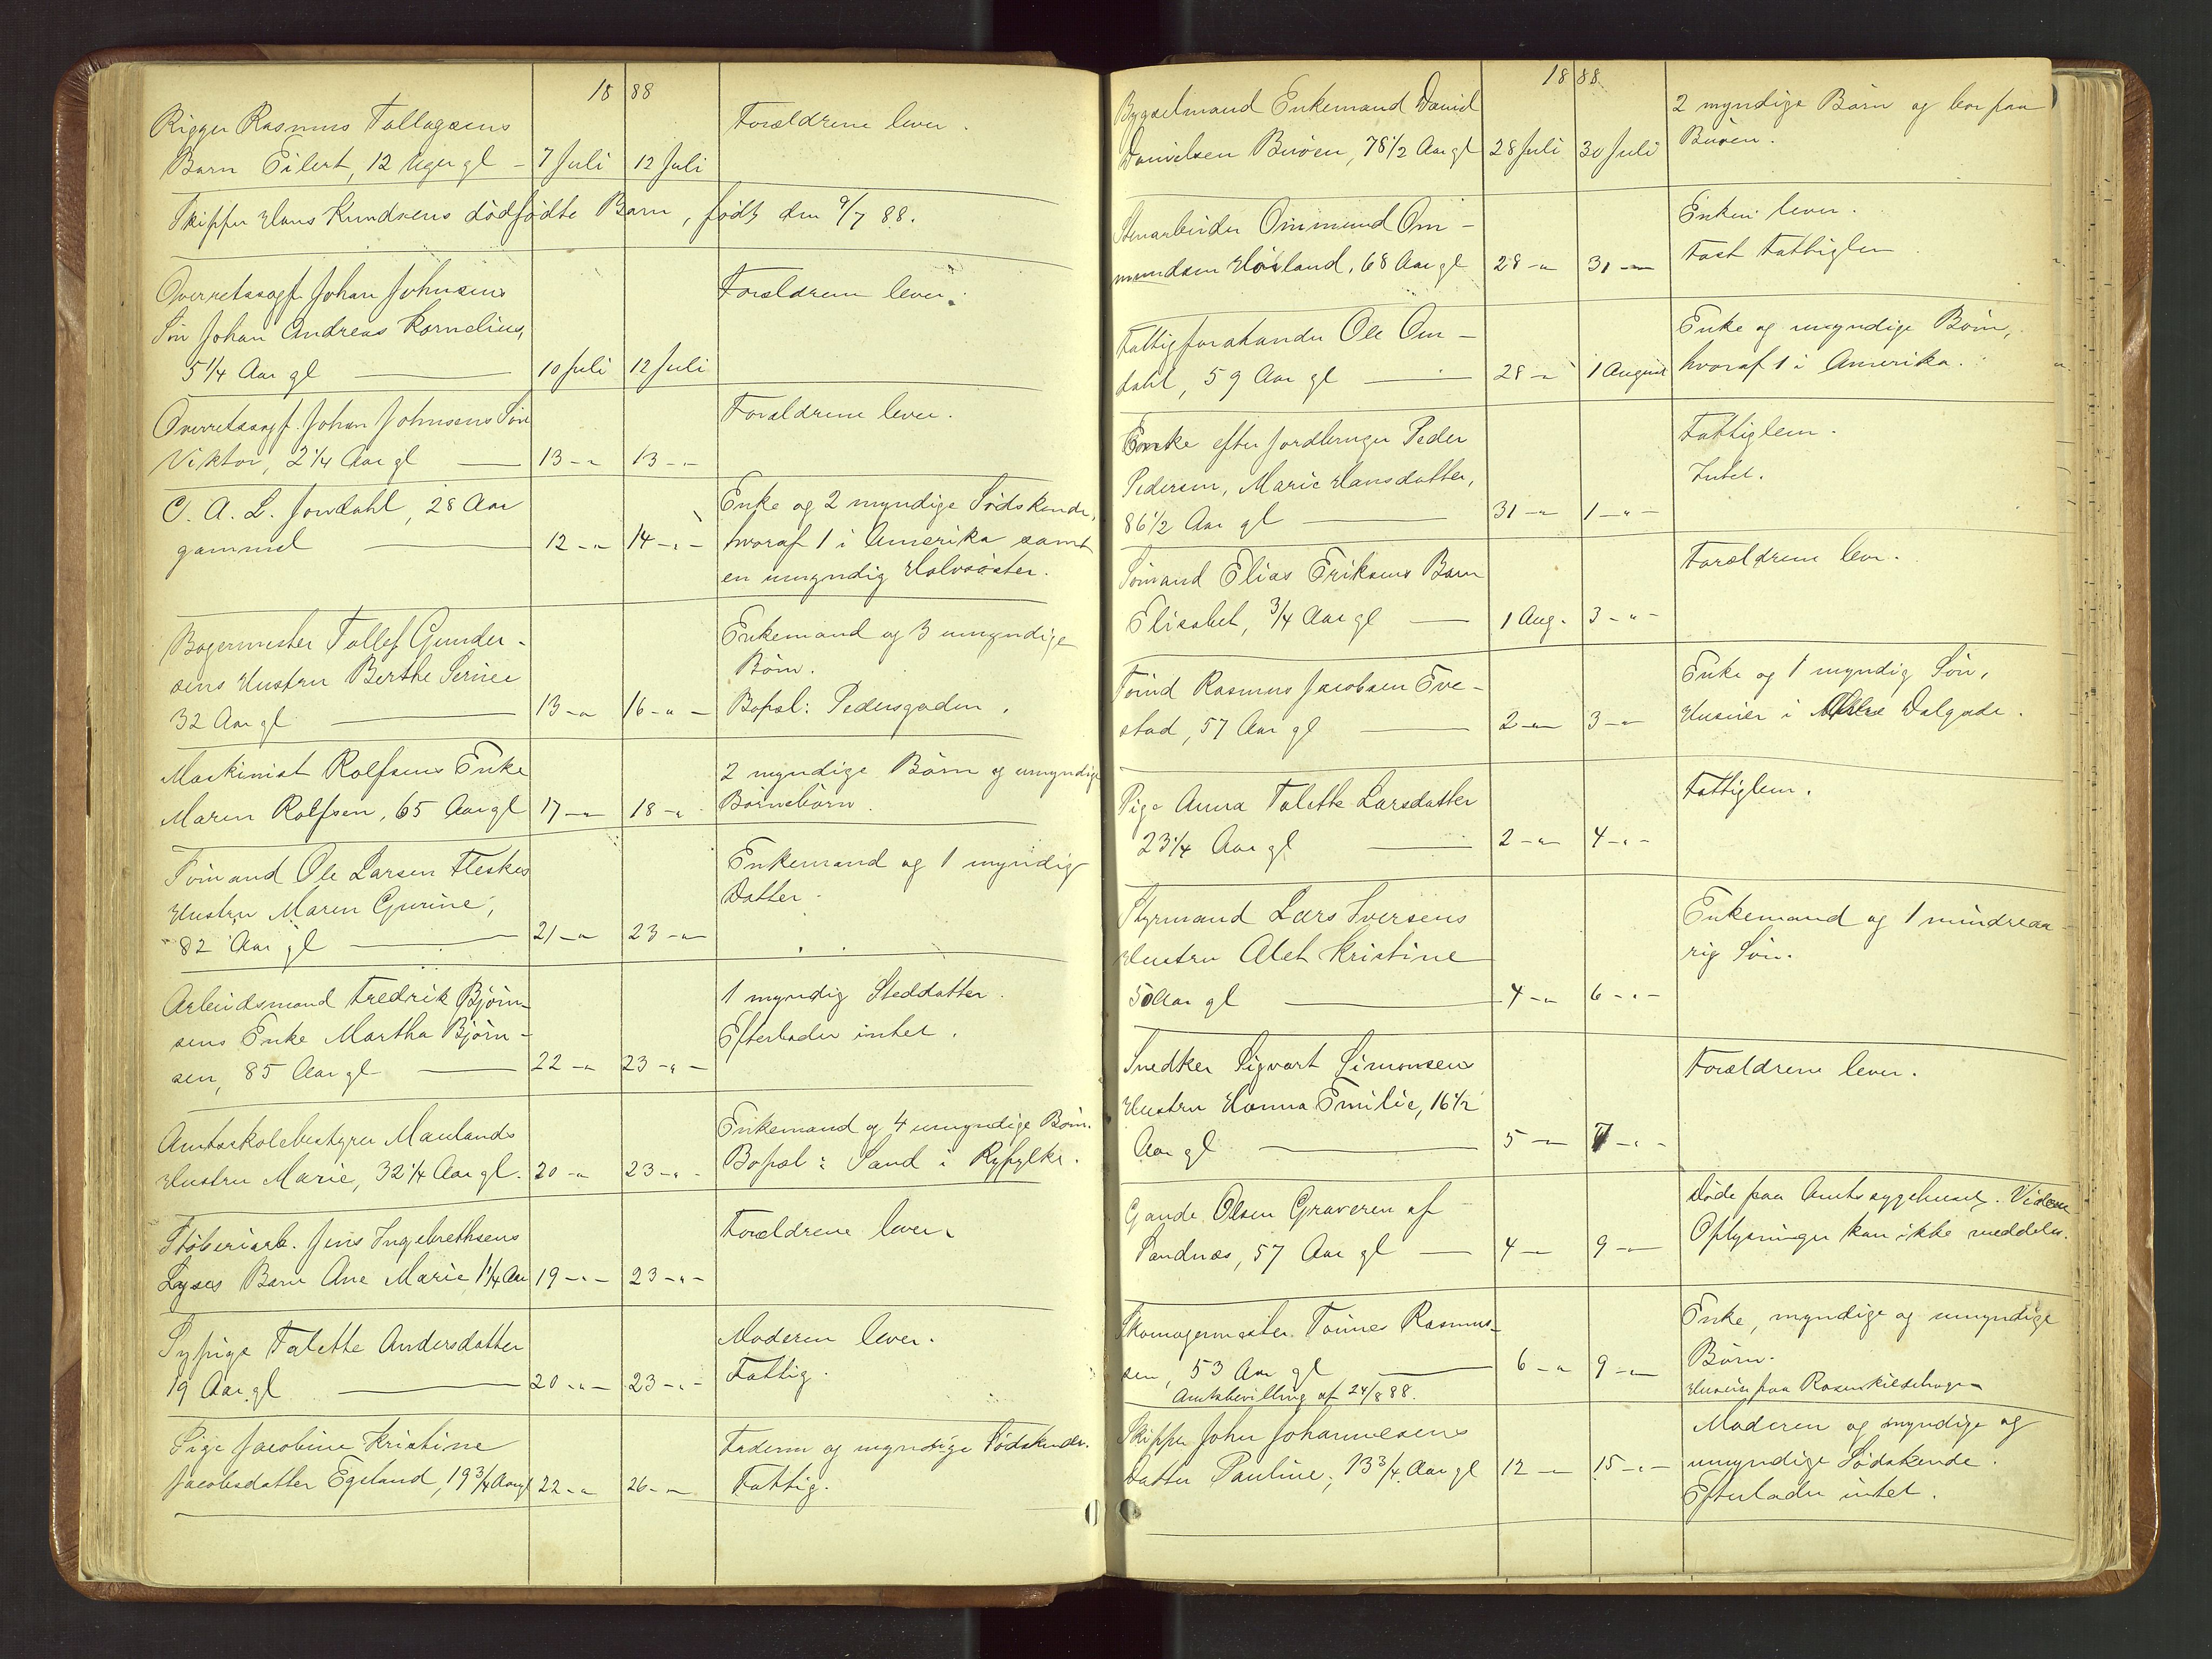 1888
Rigger Rasmus Tollagsens
Forældrene lever.
Barn Eilert, 12 Uger gl - 7 Juli 12 Juli
Skipper Hans Knudsens dödfödte Barn, födt den 9/7 88.
Overretssagf. Johan Johnsens
Forældrene lever.
Sön Johan Andreas Kornelius,
5 1/4 Aar gl 10 Juli 12 Juli
Overretssagf. Johan Johnsens Sön
Forældrene lever.
Viktor, 2 1/4 Aar gl 13 - " 13 - " -
C. A. L. Jondahl, 28 Aar
Enke og 2 myndige Södskende,
gammel 12 - " 14 - " - hvoraf 1 i Amerika samt
en umyndig Halvsöster.
Bagermester Tollef Gunder-
Enkemand og 3 umyndige
sens Hustru Berthe Serine
Börn.
32 Aar gl 13 - " 16 - " - Bopæl: Pedersgaden.
Maskinist Rolfsens Enke
2 myndige Börn og umyndige
Maren Rolfsen, 65 Aar gl 17 - " 18 - " Börnebörn.
Ole Larsen
Enkemand og 1 myndig
Hustru Maren Gurine,
Datter.
82 Aar gl 21 - " 23 - "
Arbeidsmand Fredrik Björn-
1 myndig Steddatter.
sens Enke Martha Björn-
Efterlader intet.
sen, 85 Aar gl 22 - " 23 - " -
Amtsskolebestyrer Maulands
Enkemand og 4 umyndige Börn.
Hustru Marie, 32 1/4 Aar gl. 20 - " 23 - " - Bopæl: Sand i Ryfylke.
Stöberiarb. Jens Ingebrethsens
Forældrene lever.
Lyses Barn Ane Marie 1 1/4 Aar 19 - " - 23 - " -
Sypige Talette Andersdatter
Moderen lever.
19 Aar gl 20 - " - 23 - " - Fattig.
Pige Jacobine Kristine
Faderen og myndige Södskende.
Jacobsdatter Egeland, 19 3/4 Aar gl 22 - " 26 - " Fattig.
1888
Bygselmand Enkemand David
2 myndige Börn og bor paa
Danielsen Buöen, 78 1/2 Aar gl 28 Juli 30 Juli Buöen.
Stenarbeider Ommund Om-
Enken lever.
mundsen Höiland, 68 Aar gl 28 - " 31 - " Fast Fattiglem
Fattigforstander Ole Om-
Enke og umyndige Börn,
dahl, 59 Aar gl 28 - " 1 August hvoraf 1 i Amerika.
Enke efter Jordbruger Peder
Fattiglem.
Pedersen, Marie Hansdatter,
Intet.
86 1/2 Aar gl 31 - " 1 - " -
Sömand Elias Eriksens Barn
Forældrene lever.
Elisabet, 3/4 Aar gl 1 Aug. 3 - " -
Rasmus Jacobsen Eve-
Enke og 1 myndig Sön,
stad, 57 Aar gl 2 - " 3 - " Huseier i Dalgade.
Pige Anna Talette Larsdatter
Fattiglem.
23 1/4 Aar gl 2 - " 4 - " -
Styrmand Lars Iversens
Enkemand og 1 mindreaa-
Hustru Alet Kristine
rig Sön.
50 Aar gl 4 - " 6 - " -
Snedker Sigvart Simonsens
Forældrene lever.
Hustru Hanna Emilie, 16 1/2
Aar gl 5 - " 7 - " -
Gande Olsen Graveren af
Döde paa Amtssygehuset. Videre
Sandnæs, 57 Aar gl 4 - " 9 - " Oplysninger kan ikke meddeles.
Skomagermester Tönnes Rasmus-
Enke, myndige og umyndige
sen, 53 Aar gl 6 - " 9 - " Börn.
Amtsbevilling af 24/8 88.
Huseier paa Rosenkildehagen
Skipper John Johannesens
Moderen og myndige og
Datter Pauline, 13 3/4 Aar gl 12 - " 15 - " - umyndige Södskende.
Efterlader intet.